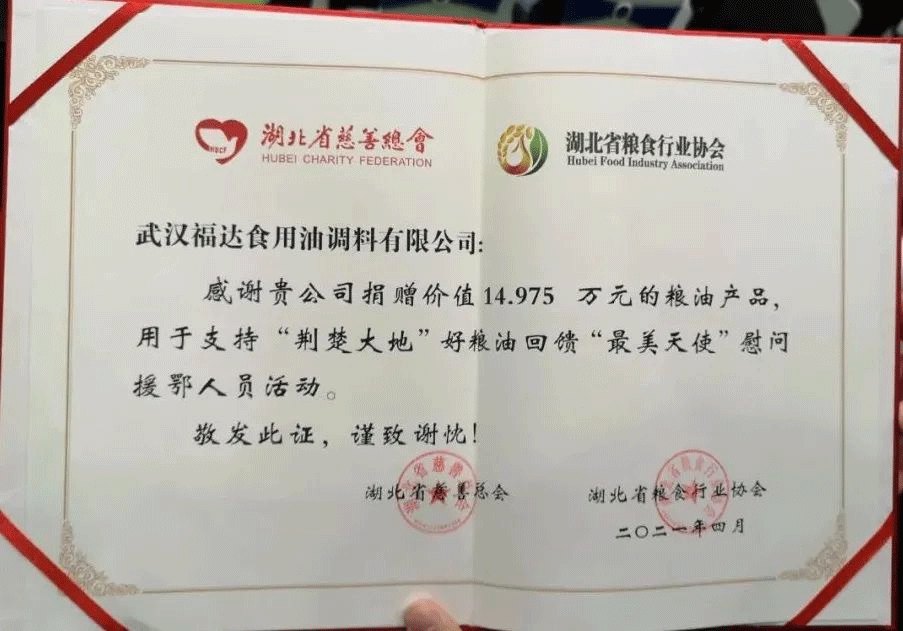 湖北省慈善總會
HUBEI CHARITY FEDERATION
HBCF
湖北省粮食行业协会
Hubei Food Industry Association
武汉福达食用油调料有限公司:
感谢贵公司捐赠价值14.975 万元的粮油产品,
用于支持“荆楚大地”好粮油回馈“最美天使”慰问
援鄂人员活动。
敬发此证,谨致谢忱!
湖北省慈善总会
湖北省粮食行业协会
二〇二一年四月